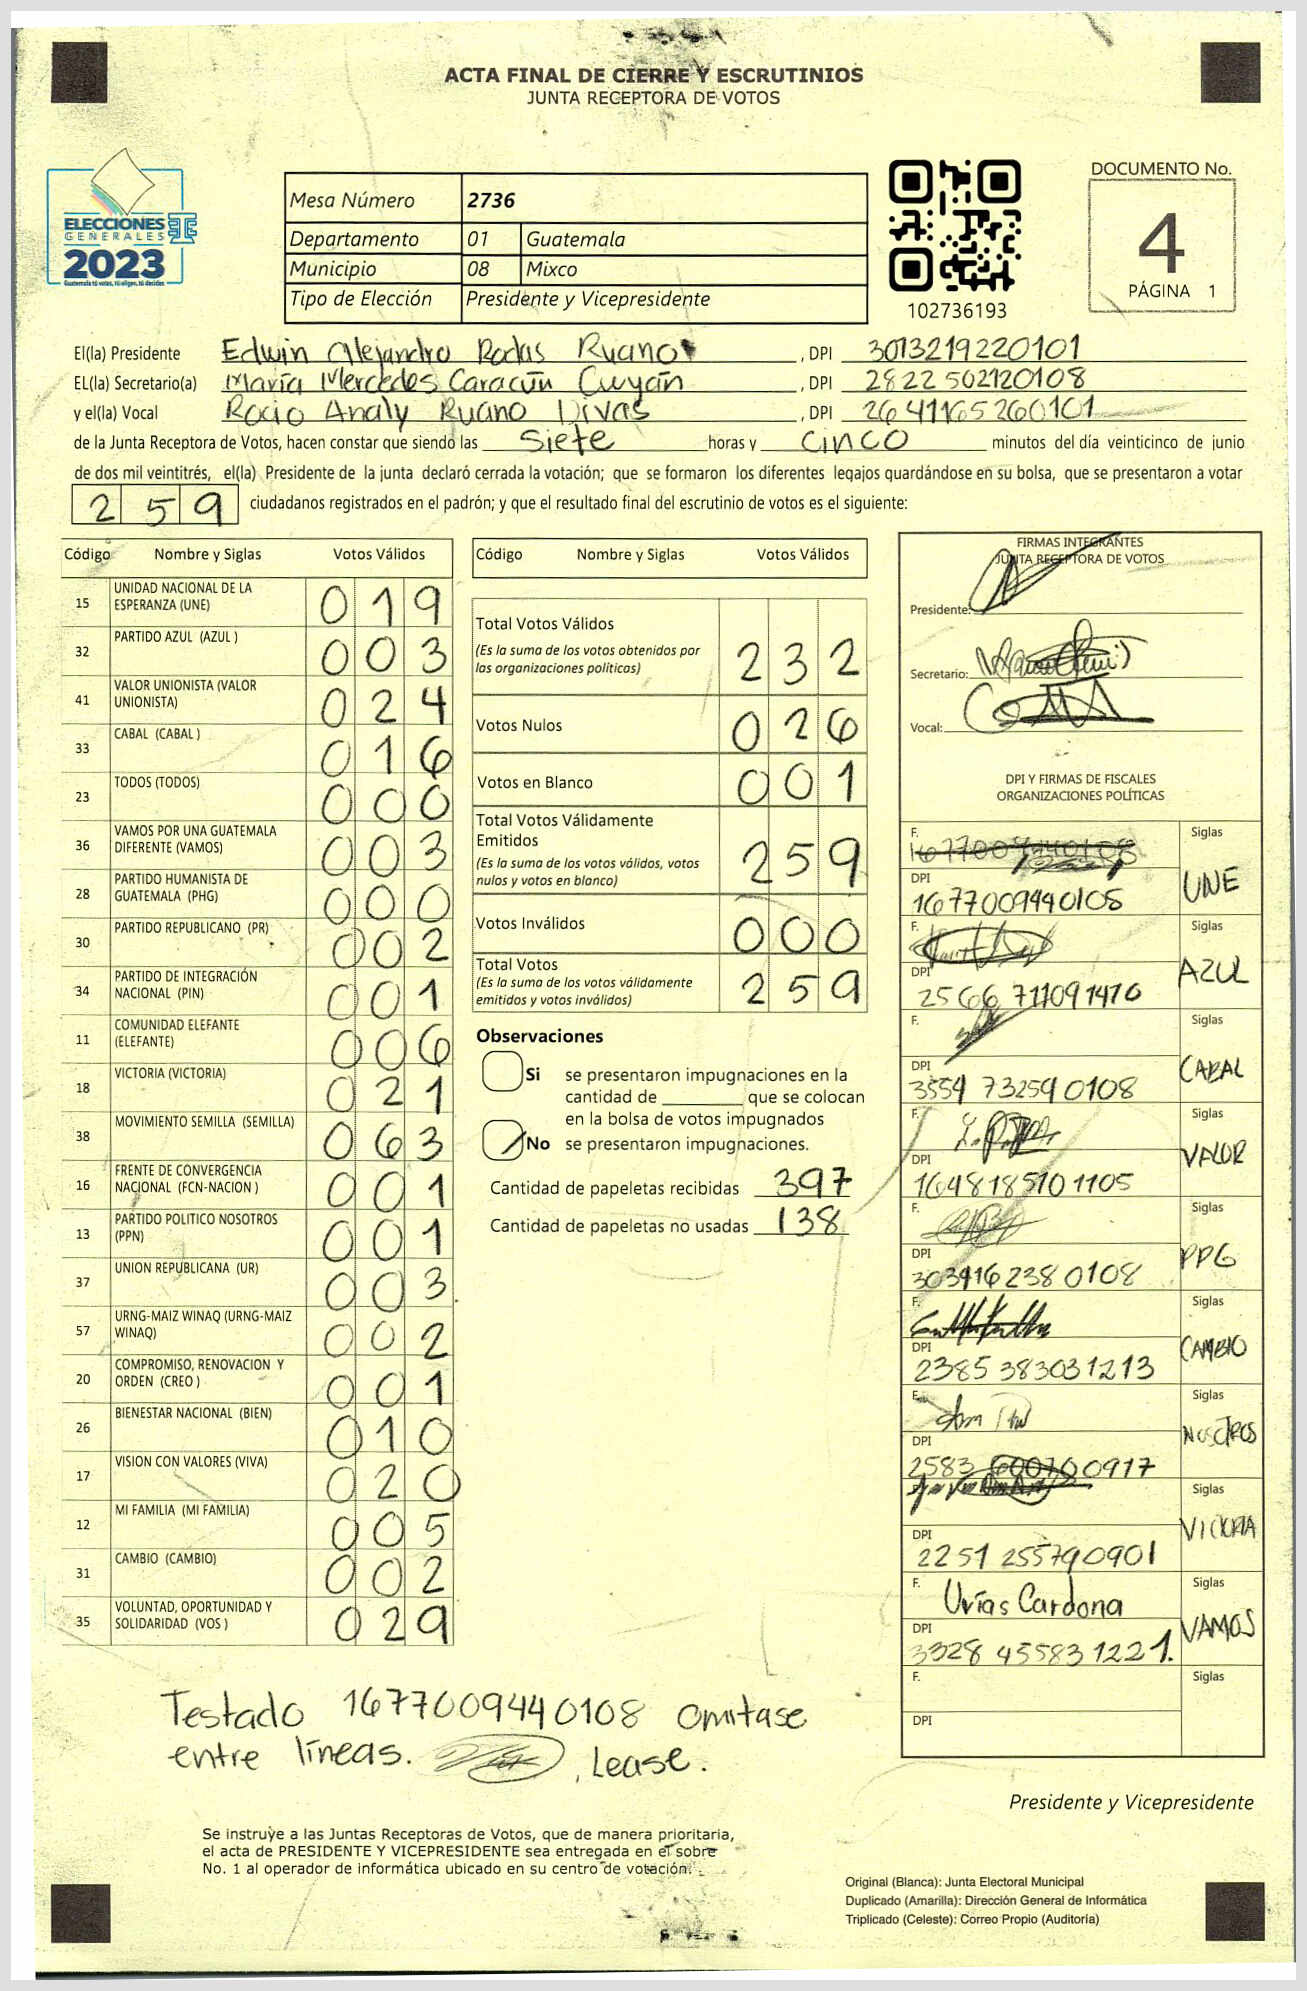 ACTA FINAL DE CIERRE Y ESCRUTINIOS
JUNTA RECEPTORA DE VOTOS
ELECCIONES
GENERALES
2023
Guatemala tú votas, tú eliges, tú decides
Mesa Número 2736
Departamento 01 Guatemala
Municipio 08 Mixco
Tipo de Elección Presidente y Vicepresidente
102736193
DOCUMENTO No.
4
PÁGINA 1
El(la) Presidente Edwin Alejandro Rodas Ruano, DPI 3013219220101
EL(la) Secretario(a) María Mercedes Caracún Cuyán, DPI 2822 502120108
y el(la) Vocal Rocio Analy Ruano Divas, DPI 2641165260101
de la Junta Receptora de Votos, hacen constar que siendo las siete horas y cinco minutos del día veinticinco de junio
de dos mil veintitrés, el(la) Presidente de la junta declaró cerrada la votación; que se formaron los diferentes legajos quardándose en su bolsa, que se presentaron a votar
259 ciudadanos registrados en el padrón; y que el resultado final del escrutinio de votos es el siguiente:
Código Nombre y Siglas Votos Válidos
15 UNIDAD NACIONAL DE LA ESPERANZA (UNE) 019
32 PARTIDO AZUL (AZUL ) 003
41 VALOR UNIONISTA (VALOR UNIONISTA) 024
33 CABAL (CABAL ) 016
23 TODOS (TODOS) 000
36 VAMOS POR UNA GUATEMALA DIFERENTE (VAMOS) 003
28 PARTIDO HUMANISTA DE GUATEMALA (PHG) 000
30 PARTIDO REPUBLICANO (PR) 002
34 PARTIDO DE INTEGRACIÓN NACIONAL (PIN) 001
11 COMUNIDAD ELEFANTE (ELEFANTE) 006
18 VICTORIA (VICTORIA) 021
38 MOVIMIENTO SEMILLA (SEMILLA) 063
16 FRENTE DE CONVERGENCIA NACIONAL (FCN-NACION ) 001
13 PARTIDO POLITICO NOSOTROS (PPN) 001
37 UNION REPUBLICANA (UR) 003
57 URNG-MAIZ WINAQ (URNG-MAIZ WINAQ) 002
20 COMPROMISO, RENOVACION Y ORDEN (CREO ) 001
26 BIENESTAR NACIONAL (BIEN) 010
17 VISION CON VALORES (VIVA) 020
12 MI FAMILIA (MI FAMILIA) 005
31 CAMBIO (CAMBIO) 002
35 VOLUNTAD, OPORTUNIDAD Y SOLIDARIDAD (VOS ) 029
Código Nombre y Siglas Votos Válidos
Total Votos Válidos
(Es la suma de los votos obtenidos por
las organizaciones políticas) 232
Votos Nulos 026
Votos en Blanco 001
Total Votos Válidamente
Emitidos
(Es la suma de los votos válidos, votos
nulos y votos en blanco) 259
Votos Inválidos 000
Total Votos
(Es la suma de los votos válidamente
emitidos y votos inválidos) 259
Observaciones
Si se presentaron impugnaciones en la
cantidad de ________ que se colocan
en la bolsa de votos impugnados
No se presentaron impugnaciones.
Cantidad de papeletas recibidas 397
Cantidad de papeletas no usadas 138
FIRMAS INTEGRANTES
JUNTA RECEPTORA DE VOTOS
Presidente:
Secretario:
Vocal:
DPI Y FIRMAS DE FISCALES
ORGANIZACIONES POLÍTICAS
F. 1677009440108 Siglas
DPI 1677009440105 UNE
F. Siglas
DPI 2566 711091410 AZUL
F. Siglas
DPI 3554 73259 0108 CABAL
F. Siglas
DPI 1648185101105 VALOR
F. Siglas
DPI 303416238 0108 PPG
F. Siglas
DPI 2385 383031213 CAMBIO
F. Siglas
DPI 2583 600700917 NOSOTROS
Siglas
DPI 2251 255790901 VICTORIA
F. Urías Cardona Siglas
DPI 3328 45583 1221. VAMOS
F. Siglas
DPI
Testado 1677009440108 omitase
entre líneas. , Lease.
Presidente y Vicepresidente
Se instruye a las Juntas Receptoras de Votos, que de manera prioritaria,
el acta de PRESIDENTE Y VICEPRESIDENTE sea entregada en el sobre
No. 1 al operador de informática ubicado en su centro de votación.
Original (Blanca): Junta Electoral Municipal
Duplicado (Amarilla): Dirección General de Informática
Triplicado (Celeste): Correo Propio (Auditoría)